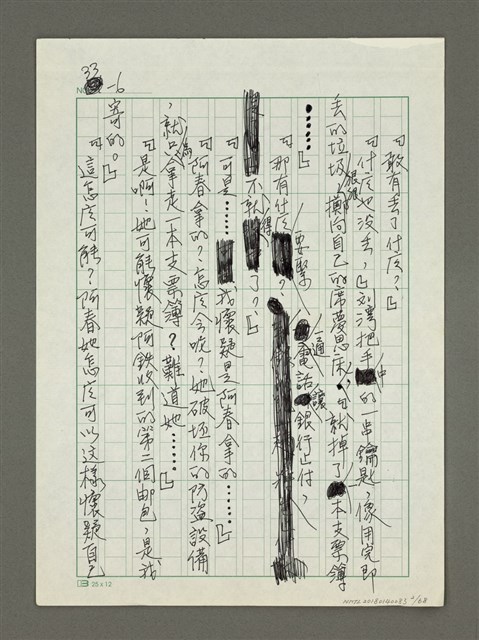 33-6
「敢有丟了什麼？」
「什麼也沒丟，」刘湾把手中的一串鑰匙，像用完即
丟的垃圾，狠狠擲向自己的席夢思床，「就掉了本支票簿
……」
「那有什麼要緊？一通電話讓銀行止付，
不就得了？」
「可是……我懷疑是阿春拿的……」
「阿春拿的？怎麼会呢？她破坏你的防盜設備
，就只為拿走一本支票簿？難道她……」
「是啊！她可能懷疑阿鉄收到的第二個邮包，是我
寄的。」
「這怎麼可能？阿春她怎麼可以这樣懷疑自己
25×12
NMTL20180140085 2/68